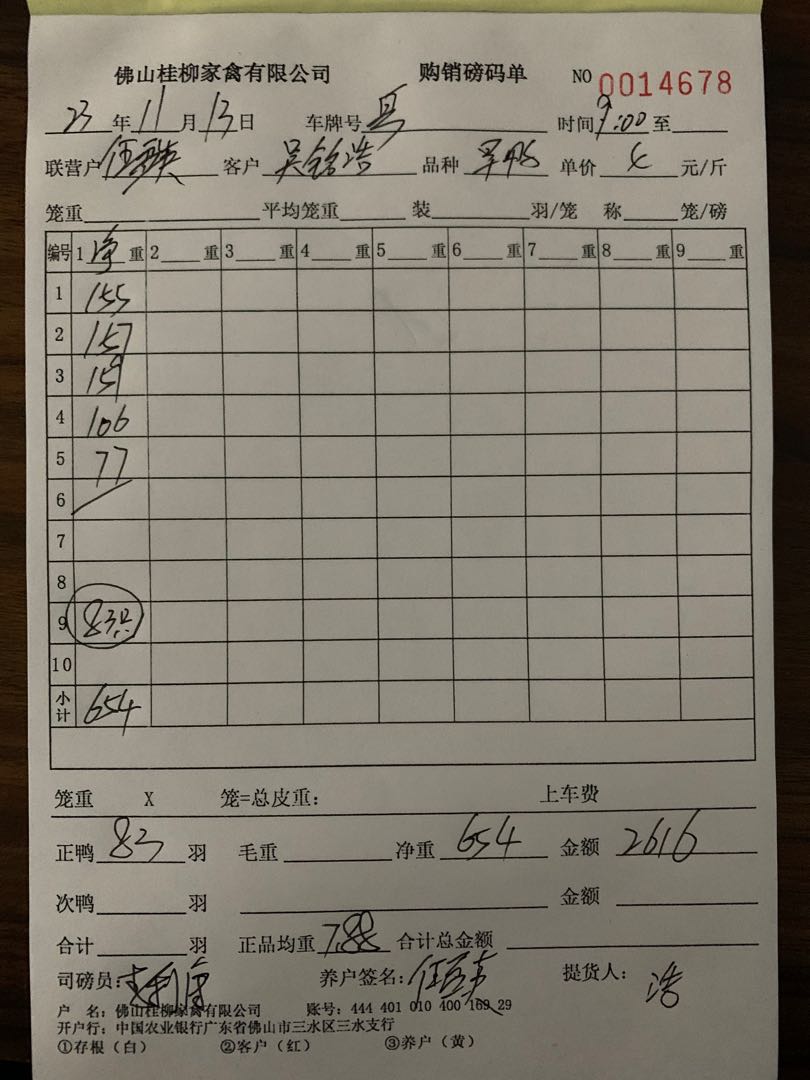 佛山桂柳家禽有限公司 购销磅码单 NO 0014678
23年11月13日 车牌号 时间9:00至
联营户 客户 吴铭浩 品种 单价 4 元/斤
笼重 平均笼重 装 羽/笼 称 笼/磅
编号 1净重 2 重 3 重 4 重 5 重 6 重 7 重 8 重 9 重
1 155
2 157
3 159
4 106
5 77
6
7
8
9 83只
10
小计 654
笼重 X 笼=总皮重: 上车费
正鸭 83 羽 毛重 净重 654 金额 2616
次鸭 羽 金额
合计 羽 正品均重 7.88 合计总金额
司磅员: 养户签名: 提货人: 浩
户 名: 佛山桂柳家禽有限公司 账号: 444 401 010 400 169 29
开户行: 中国农业银行广东省佛山市三水区三水支行
①存根(白) ②客户(红) ③养户(黄)